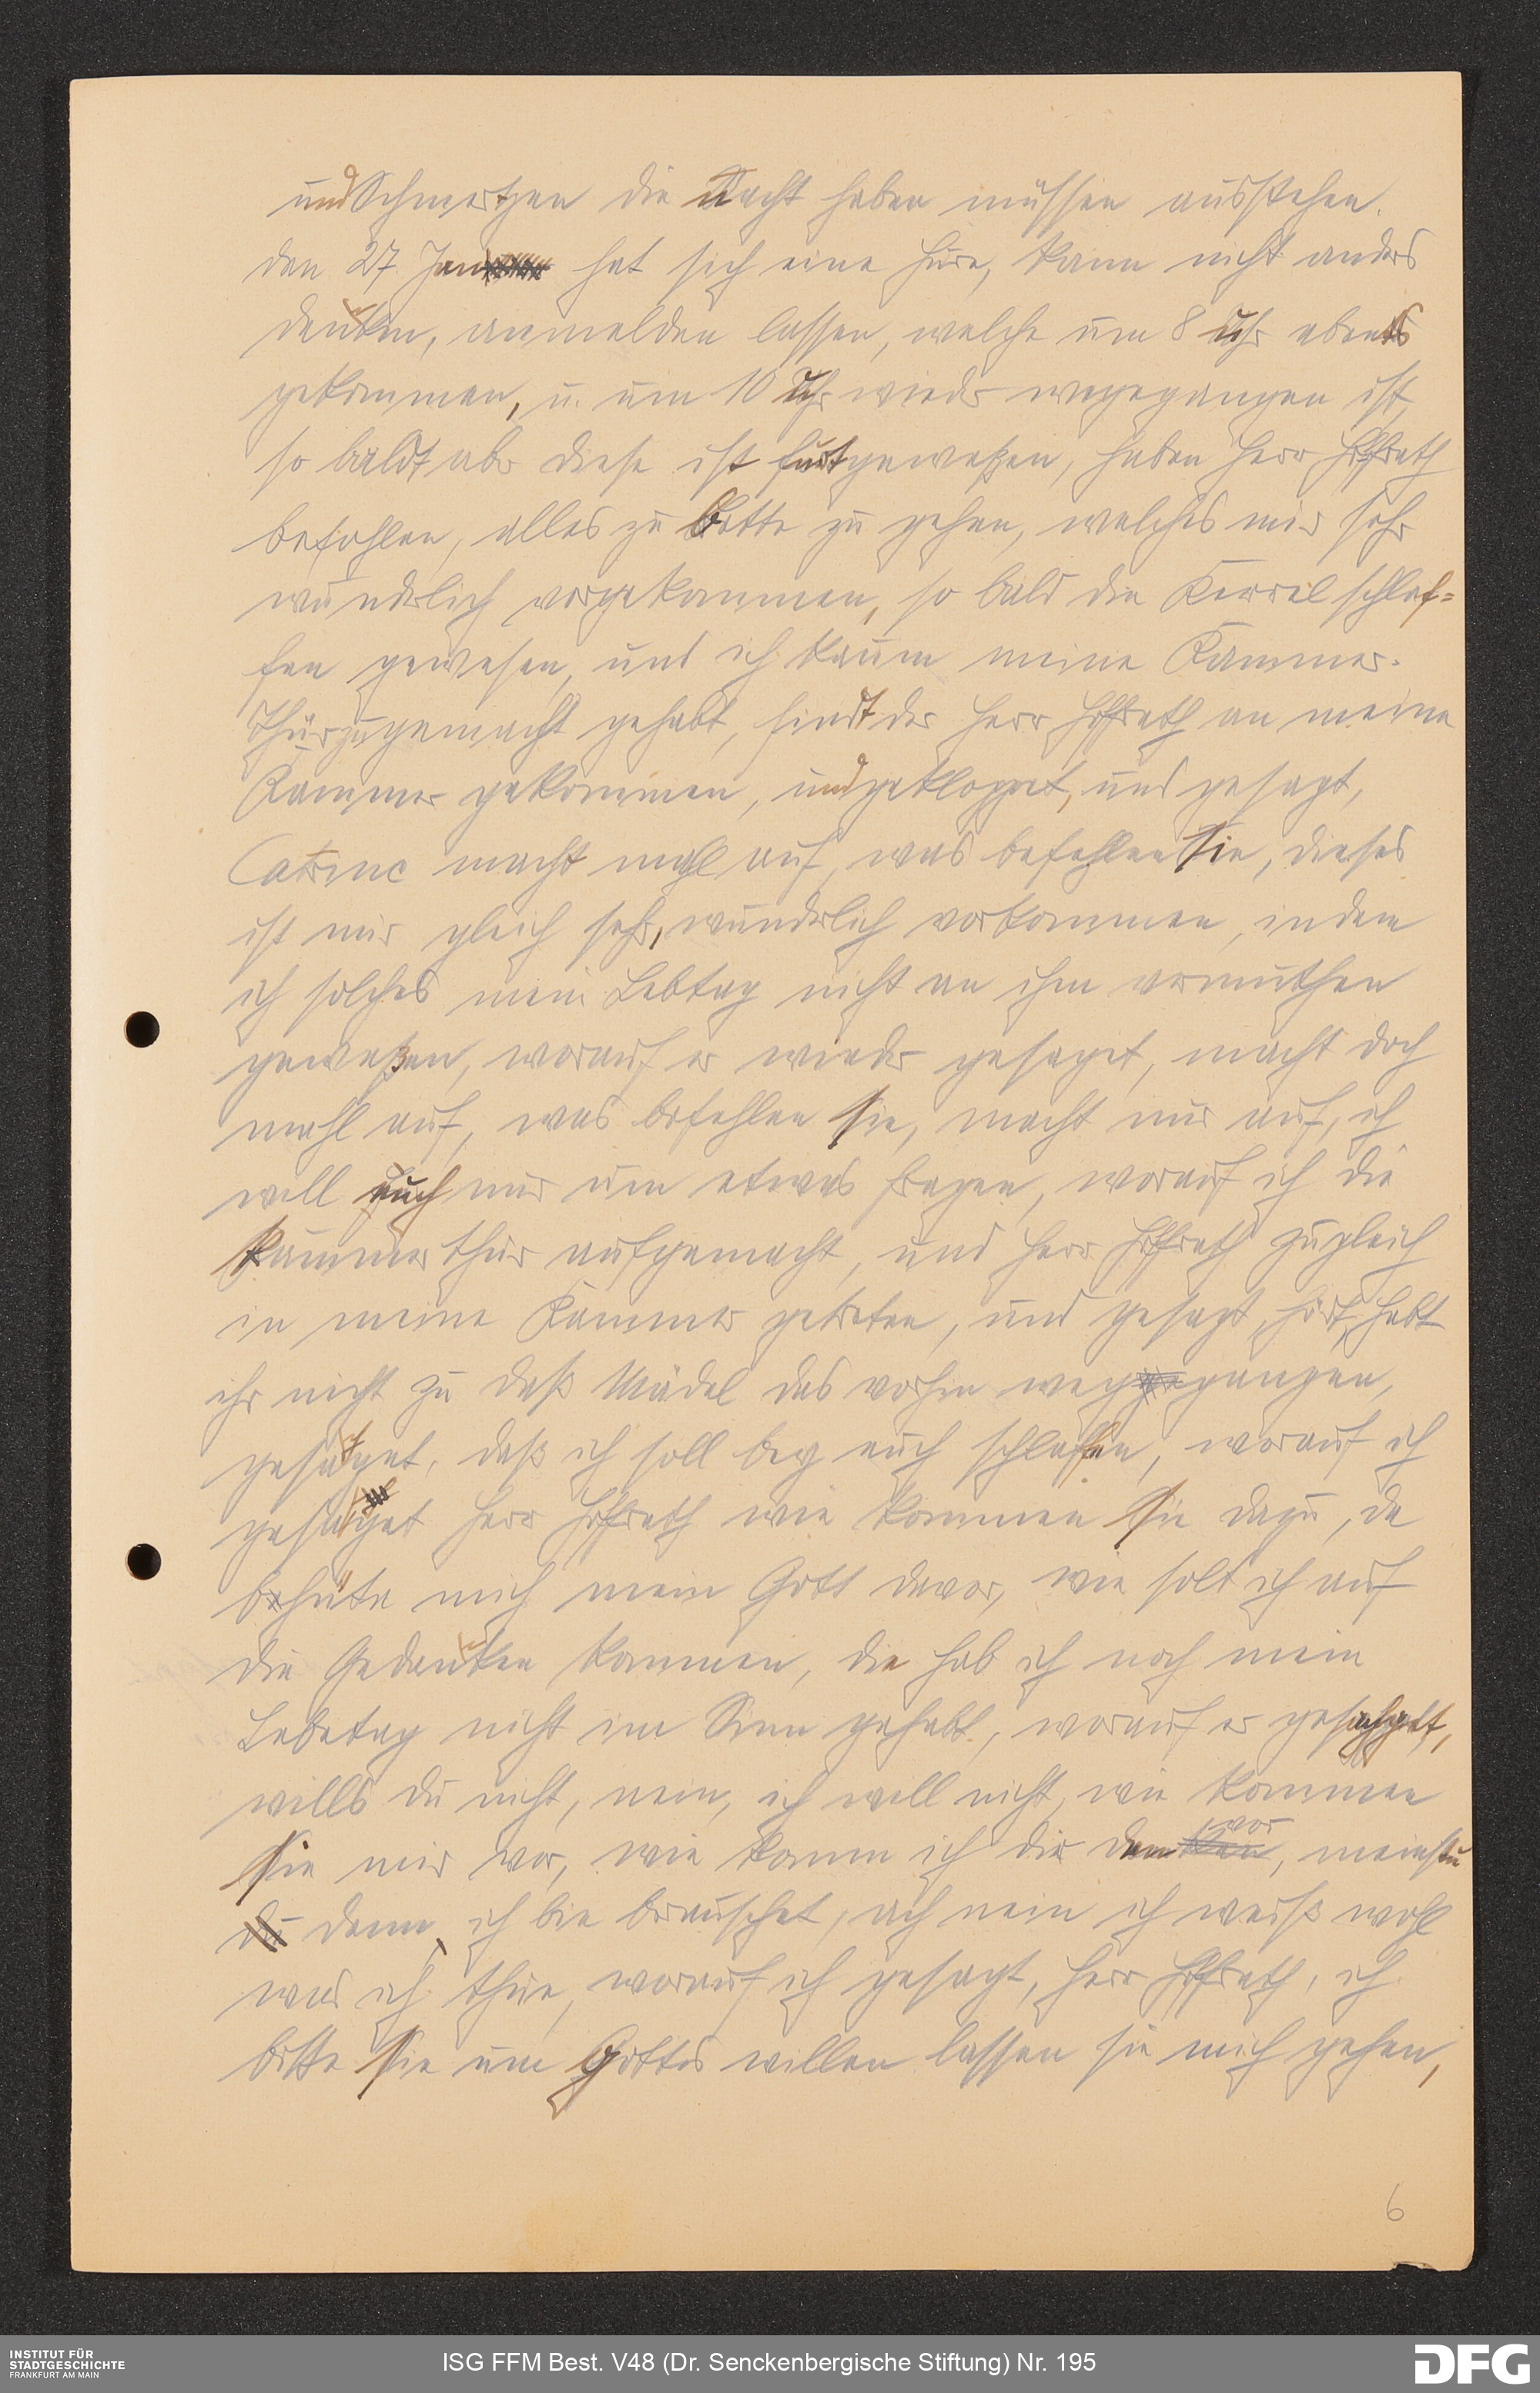 und Schmertzen die Nacht haben müssen ausstehen.
den 27. Jan hat sich eine Hure, kann nicht anders
denken, anmelden lassen, welche um 8 Uhr abents
gekommen, u. um 10 Uhr wieder wegegangen ist,
so baldt aber diese ist furtgeweßen, haben Herr Hofrath
befohlen, alles zu Bette zu gehen, welches mir sehr
wunderlich vorgekommen, so bald die Kerrel schlaf=
fen gewesen, und ich kaum meine Kammer-
Thür zugemacht gehabt, sindt der Herr Hofrath an meine
Kammer gekommen, und gekloppet, und gesagt,
Catrine macht mahl auf, was befehlen Sie, dieses
ist mir gleich sehr, wunderlich vorkommen, indem
ich solches mein Lebtag nicht an ihm vermuthen
geweßen, worauf er wieder gesaget, macht doch
mahl auf, was befehlen Sie, macht nur auf, ich
will euch nur um etwas fragen, worauf ich die
Kammerthür aufgemacht, und Herr Hofrath zugleich
in meine Kammer getreten, und gesagt, hört, habt
ihr nicht zu daß Mädel das vorhin weggangen,
gesaget, daß ich soll bey euch schlafen, worauf ich
gesaget Herr Hofrath wie kommen Sie dazu, da
behüte mich mein Gott davor, wie solt ich auf
die Gedanken kommen, die hab ich noch mein
Lebetag nicht im Sinn gehabt, worauf er gesahgett,
wills du nicht, nein, ich will nicht, wie kommen
vor
Sie mir vor, wie komm ich dir dem, meinstu
du denn, ich bin berauschet, ach nein ich weiß wohl
was ich thue, worauf ich gesagt, Herr Hofrath, ich
bitte Sie um Gottes willen lassen sie mich gehen,
6
INSTITUT FÜR
STADTGESCHICHTE
FRANKFURT AM MAIN
ISG FFM Best. V48 (Dr. Senckenbergische Stiftung) Nr. 195
DFG